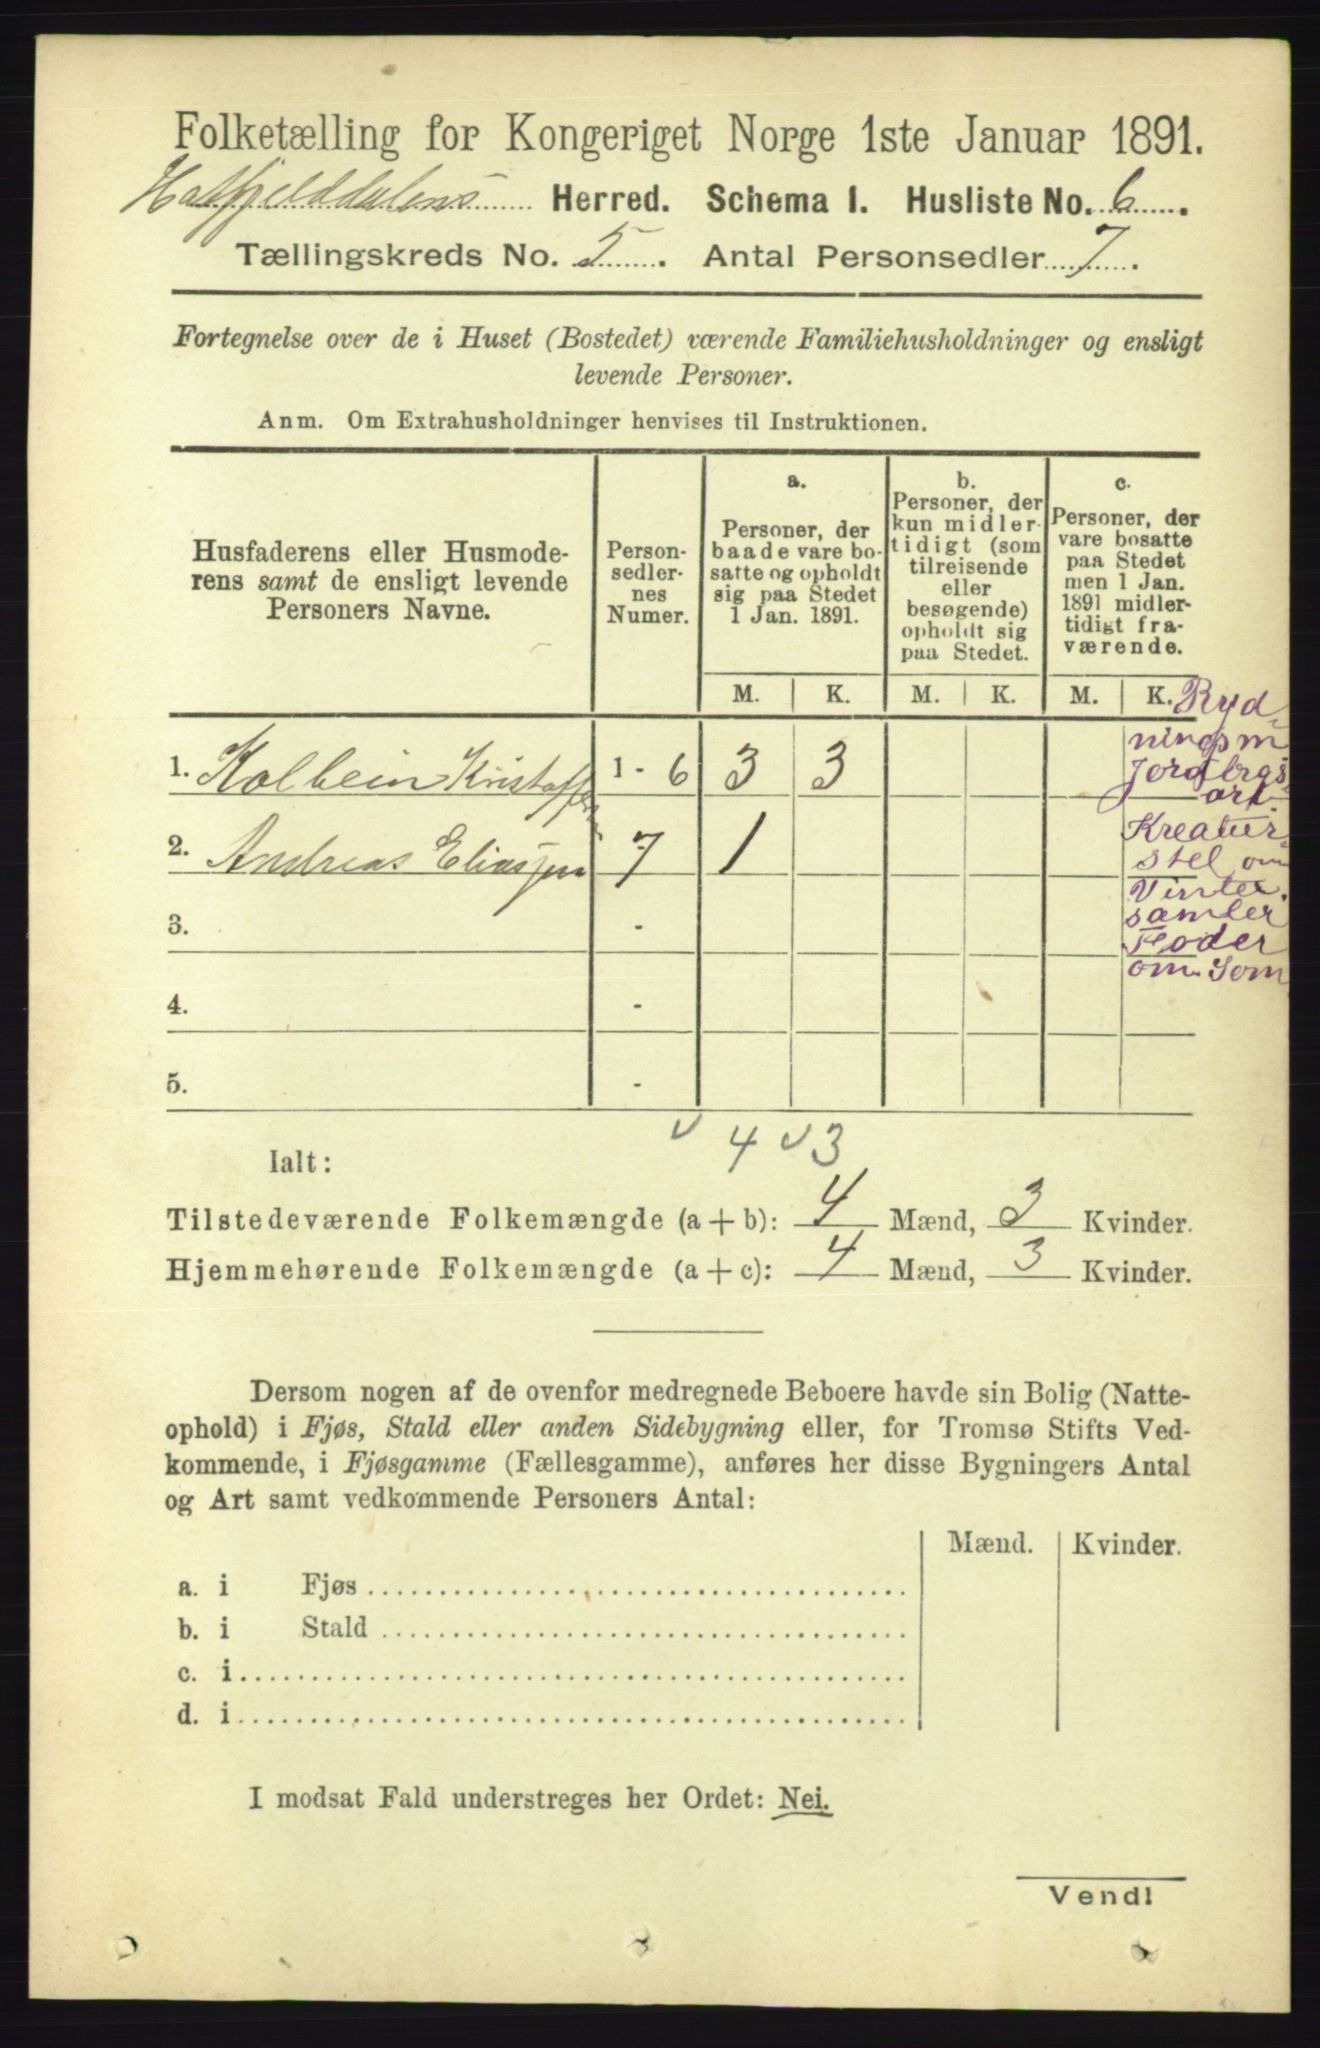 Folketælling for Kongeriget Norge 1ste Januar 1891.
Hatfjelddalens Herred. Schema I. Husliste No. 6.
Tællingskreds No. 5. Antal Personsedler 7.
Fortegnelse over de i Huset (Bostedet) værende Familiehusholdninger og ensligt
levende Personer.
Anm. Om Extrahusholdninger henvises til Instruktionen.
Husfaderens eller Husmode-
rens samt de ensligt levende
Personers Navne.
Person-
sedler-
nes
Numer.
a.
Personer, der
baade vare bo-
satte og opholdt
sig paa Stedet
1 Jan. 1891.
b.
Personer, der
kun midler-
tidigt (som
tilreisende
eller
besøgende)
opholdt sig
paa Stedet.
c.
Personer, der
vare bosatte
paa Stedet
men 1 Jan.
1891 midler-
tidigt fra-
værende.
M. K. M. K. M. K.
Ryd-
ningsm
Jordbrgs
arb.
Kreatur
stel om
Vinter.
samler
Foder
om Som
1. Kolbein Kristoffersen 1 - 6 3 3
2. Andreas Eliassen 7 1
3. -
4. -
5. -
4 3
Ialt:
Tilstedeværende Folkemængde (a + b): 4 Mænd, 3 Kvinder.
Hjemmehørende Folkemængde (a + c): 4 Mænd, 3 Kvinder.
Dersom nogen af de ovenfor medregnede Beboere havde sin Bolig (Natte-
ophold) i Fjøs, Stald eller anden Sidebygning eller, for Tromsø Stifts Ved-
kommende, i Fjøsgamme (Fællesgamme), anføres her disse Bygningers Antal
og Art samt vedkommende Personers Antal:
Mænd. Kvinder.
a. i Fjøs
b. i Stald
c. i
d. i
I modsat Fald understreges her Ordet: Nei.
Vend!